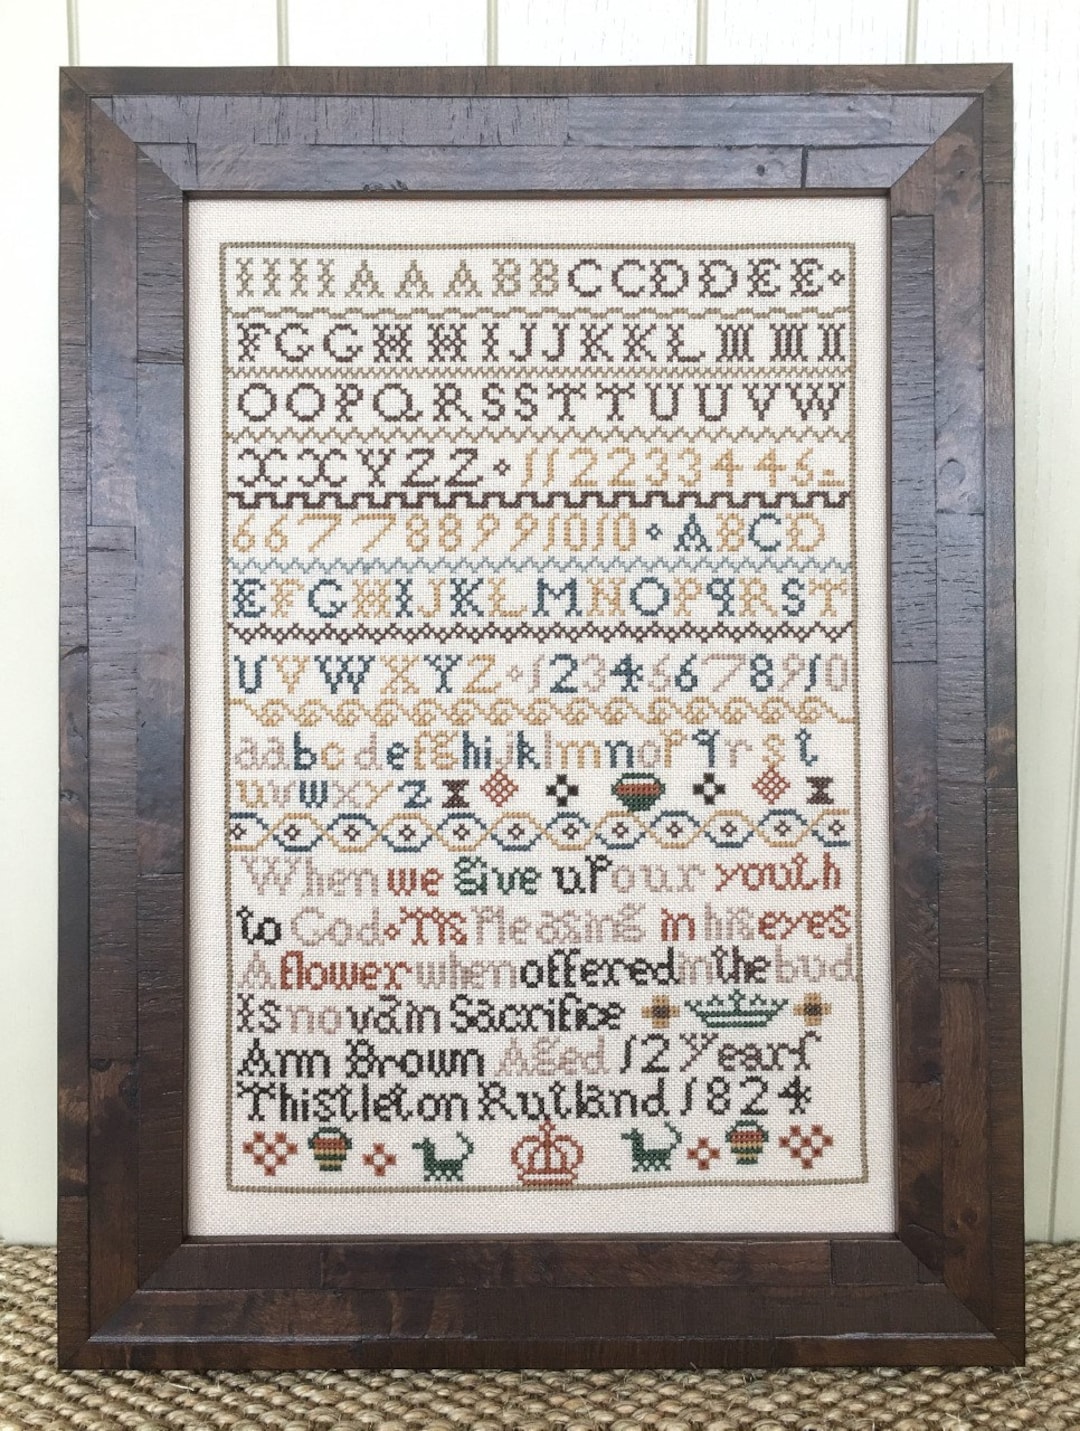 I I I I A A A B B C C D D E E
F G G H H I J J K K L M M N
O O P Q R S S T T U U V W
X X Y Z Z 1 1 2 2 3 3 4 4 5
6 6 7 7 8 8 9 9 10 10 A B C D
E F G H I J K L M N O P q R S T
U V W X Y Z 1 2 3 4 6 6 7 8 9 10
a a b c d e f g h i j k l m n o p q r s t
u v w x y z
When we give up our youth
to God Tis Pleasing in his eyes
A flower when offered in the bud
Is no vain Sacrifice
Ann Brown Aged 12 Years
Thistleton Rutland 1824